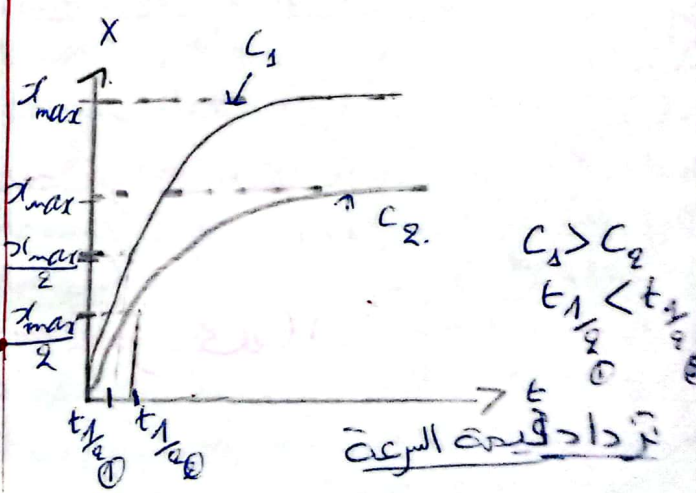 X
C₁
x_max
x_max
C₂.
x_max/2
C₁ > C₂
t1/2① < t1/2②
x_max/2
t
t1/2① t1/2②
تزداد قيمة السرعة